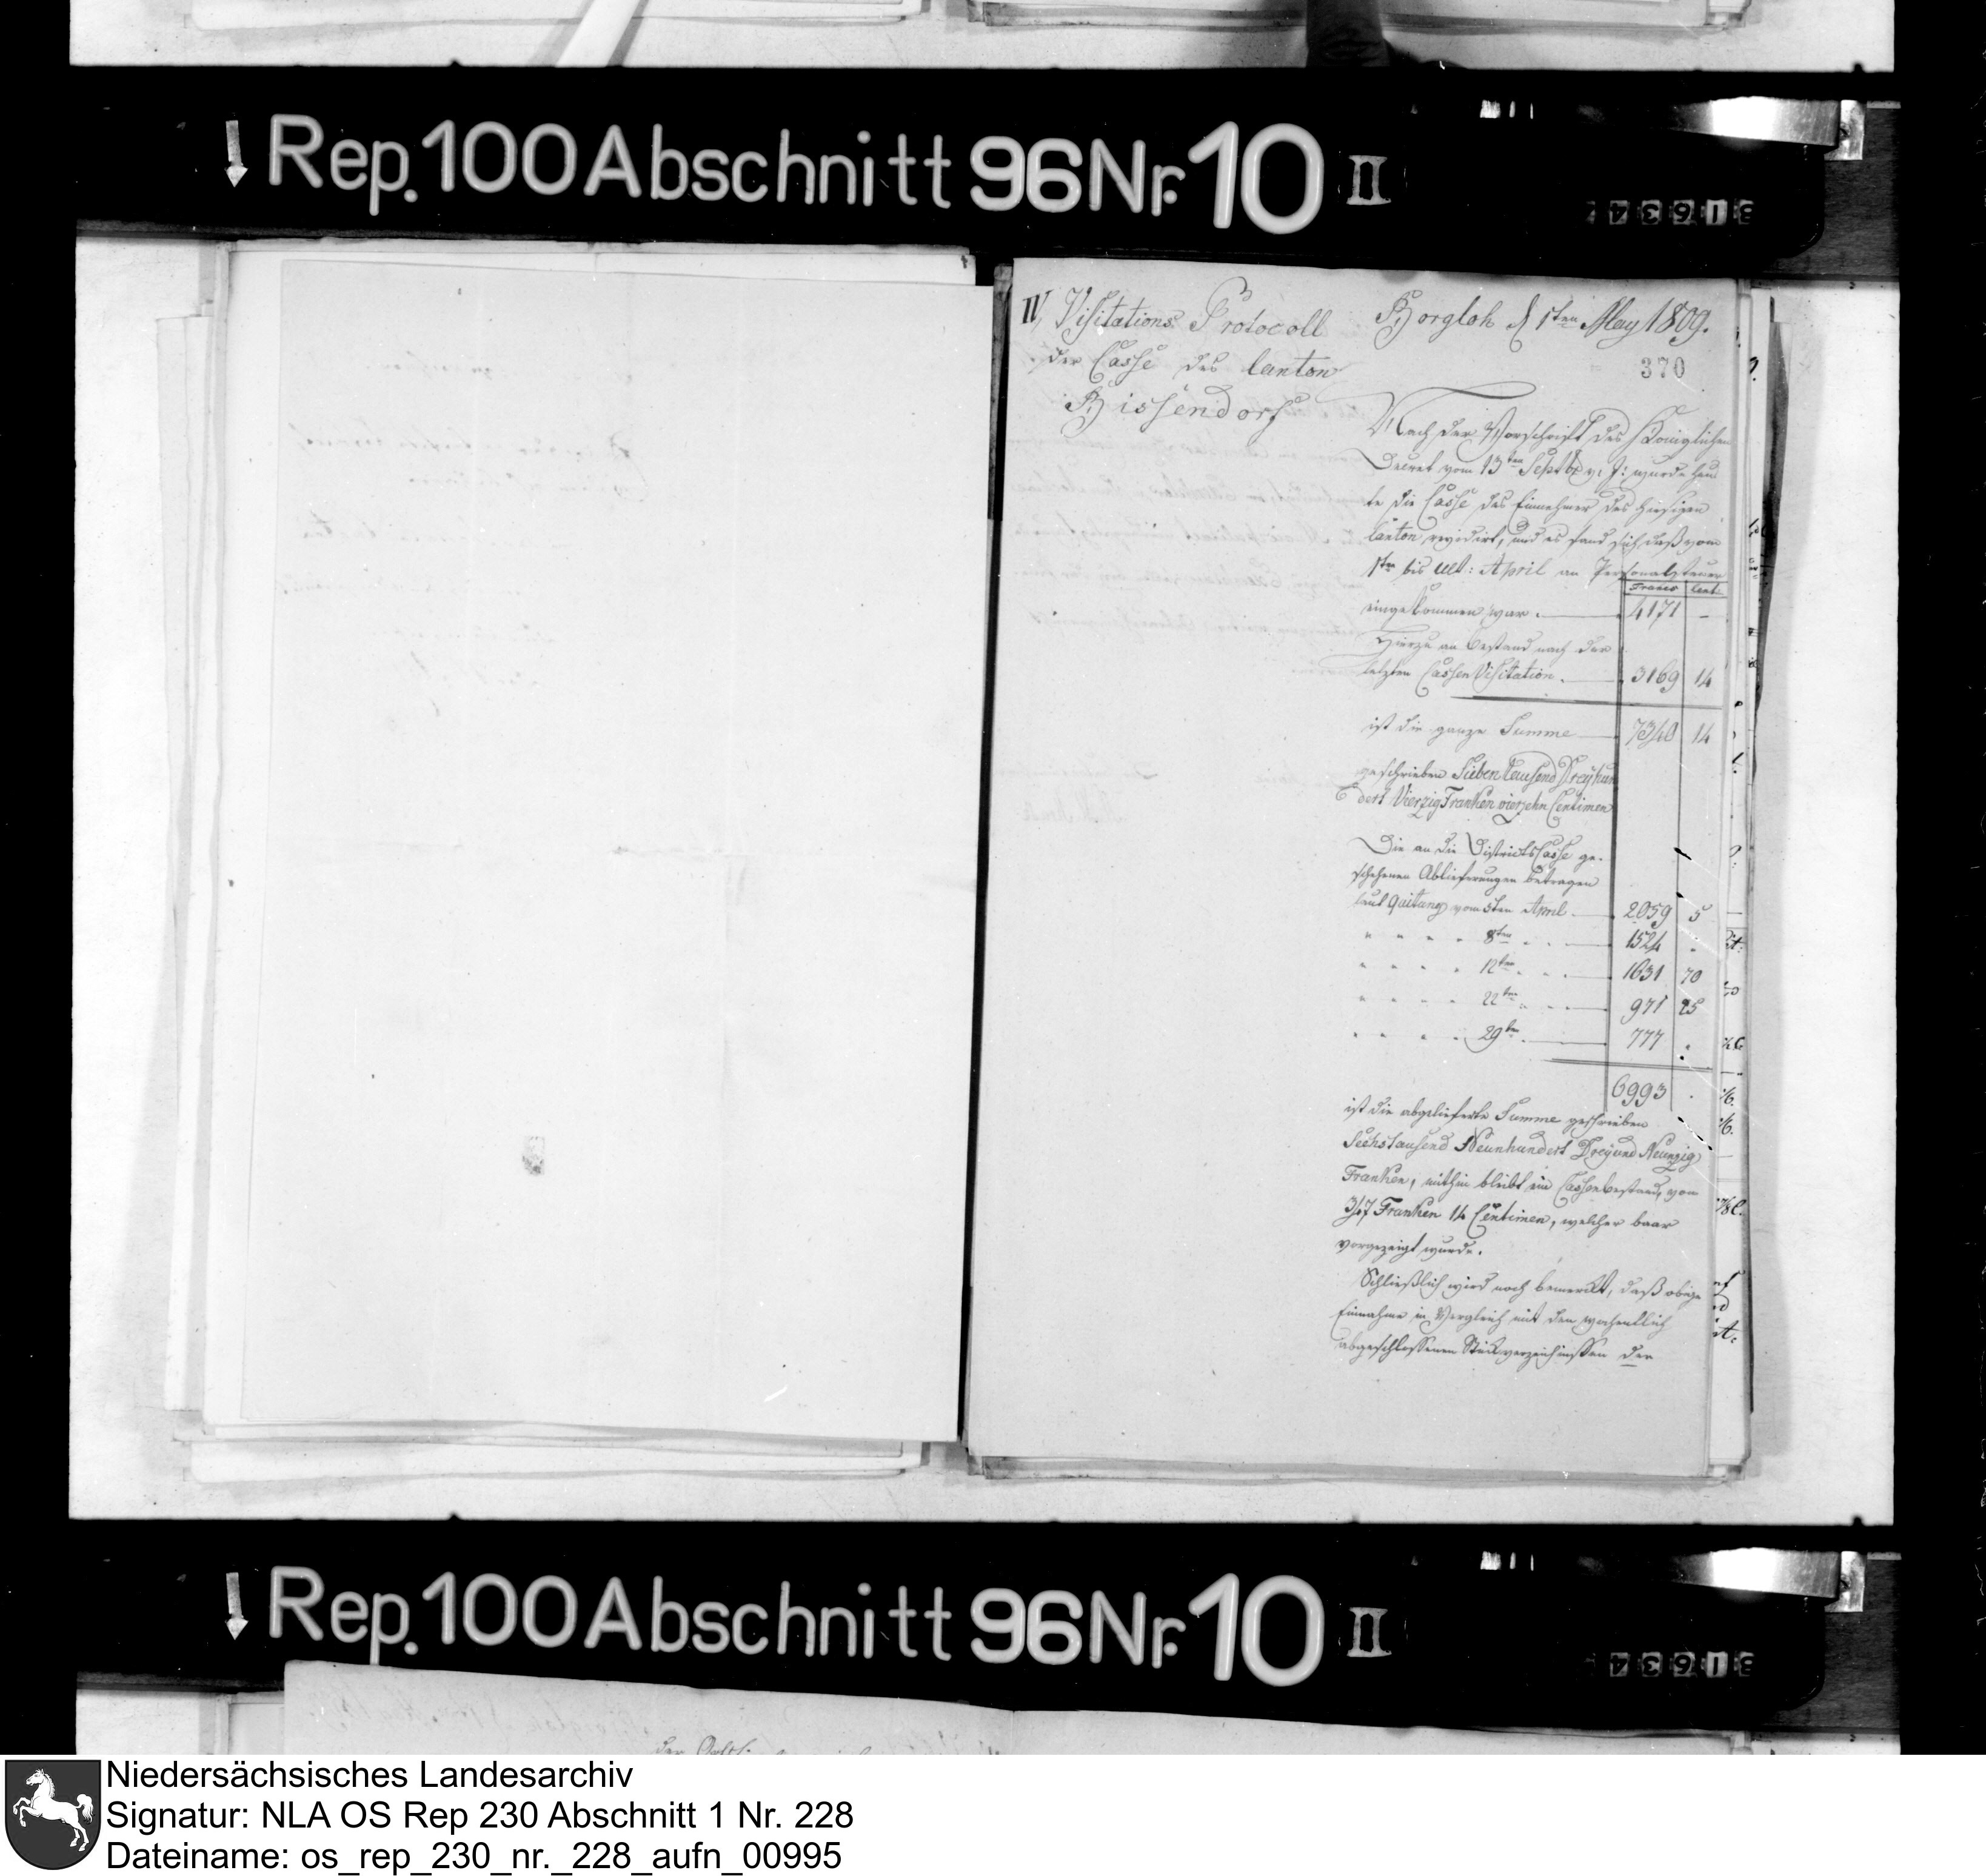 Rep. 100 Abschnitt 96 Nr. 10 II
31634
IV, Visitations Protocoll
der Casse des Canton
Bissendorf
Borgloh d 1ten May 1809.
370
Nach der Vorschrift des Königlichen
Decret vom 13ten Septbr v. J: wurde heu
te die Casse des Einnehmer des hiesigen
Canton revidirt, und es fand sich daß vom
1ten bis ult: April an Personalsteuer
Francs Cent:
eingekommen war. 4171 –
Hierzu an Bestand nach der
letzten Cassen Visitation. 3169 14
ist die ganze Summe 7340 14
geschrieben Sieben Tausend Dreyhun
dert Vierzig Franken vierzehn Centimen
Die an die Districts Casse ge-
schehenen Ablieferungen betragen
laut Quitung vom 5ten April. 2059 5
" " " " 8ten 1524 .
" " " " 12ten 1631 70
" " " " 22ten 971 25
" " " " 29ten 777 .
6993 .
ist die abgelieferte Summe geschrieben
Sechstausend Neunhundert Dreyund Neunzig
Franken, mithin bleibt ein Cassenbestand, von
347 Franken 14 Centimen, welcher baar
vorgezeigt wurde.
Schließlich wird noch bemerkt, daß obige
Einnahme in Vergleich mit den wochentlich
abgeschlossenen Stückverzeichnissen der
Rep. 100 Abschnitt 96 Nr. 10 II
31634
Niedersächsisches Landesarchiv
Signatur: NLA OS Rep 230 Abschnitt 1 Nr. 228
Dateiname: os_rep_230_nr._228_aufn_00995